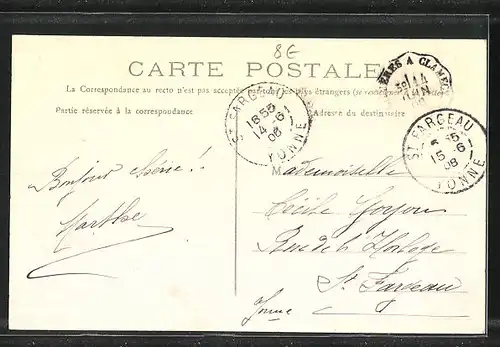 8€
CARTE POSTALE
La Correspondance au recto n'est pas acceptée par tous les pays étrangers (se renseigner
Partie réservée à la correspondance
Adresse du destinataire
ÈRES A CLAMEC
14
JUIN
ST FARGEAU
18 55
14 -6
08
YONNE
ST FARGEAU
15 -6
08
YONNE
Bonjour
Marthe
Mademoiselle
Cécile
Rue de l'Horloge
St Fargeau
Yonne